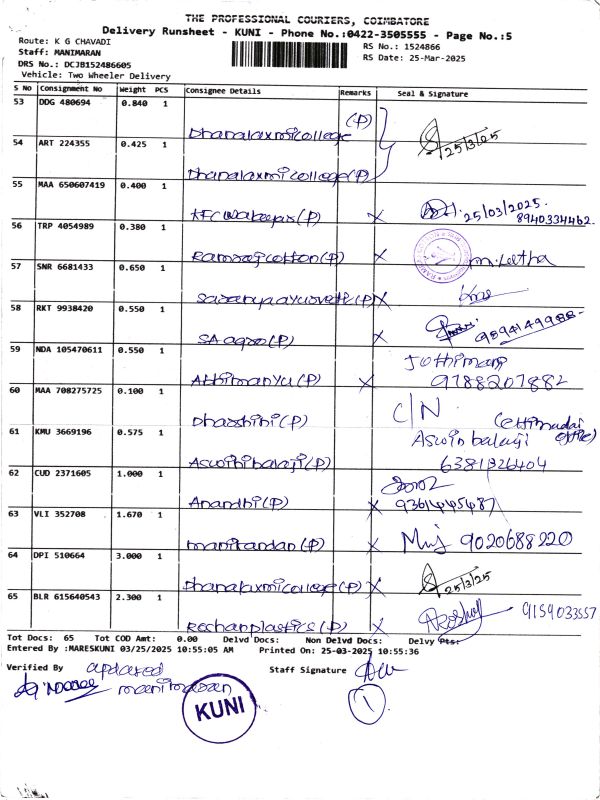 THE PROFESSIONAL COURIERS, COIMBATORE
Delivery Runsheet - KUNI - Phone No.:0422-3505555 - Page No.:5
Route: K G CHAVADI RS No.: 1524866
Staff: MANIMARAN RS Date: 25-Mar-2025
DRS No.: DCJB152486605
Vehicle: Two Wheeler Delivery
S No Consignment No Weight PCS Consignee Details Remarks Seal & Signature
53 DDG 480694 0.840 1
Dhanalaxmi college (P) 25/3/25
54 ART 224355 0.425 1
Dhanalaxmi college (P)
55 MAA 650607419 0.400 1
(P) x 25/03/2025. 8940334462.
56 TRP 4054989 0.380 1
Ramraj cotton (P) x M. Leetha
57 SNR 6681433 0.650 1
(P) x
58 RKT 9938420 0.550 1
SA agro (P) x 9894149988
59 NDA 105470611 0.550 1 Jothimani
Athimanyu (P) x 9788207882
60 MAA 708275725 0.100 1 C/N
Dharshini (P) (ettimadai office)
61 KMU 3669196 0.575 1 Aswin balaji
Aswini balaji (P) 6381326404
62 CUD 2371605 1.000 1
Anandhi (P) x
63 VLI 352708 1.670 1
manikandan (P) x 9020688220
64 DPI 510664 3.000 1
Dhanalaxmi college (P) x 25/3/25
65 BLR 615640543 2.300 1
Rechanplastics (P) x 9159033557
Tot Docs: 65 Tot COD Amt: 0.00 Delvd Docs: Non Delvd Docs: Delvy Pts:
Entered By :MARESKUNI 03/25/2025 10:55:05 AM Printed On: 25-03-2025 10:55:36
Verified By updated Staff Signature
manimaran
KUNI
1